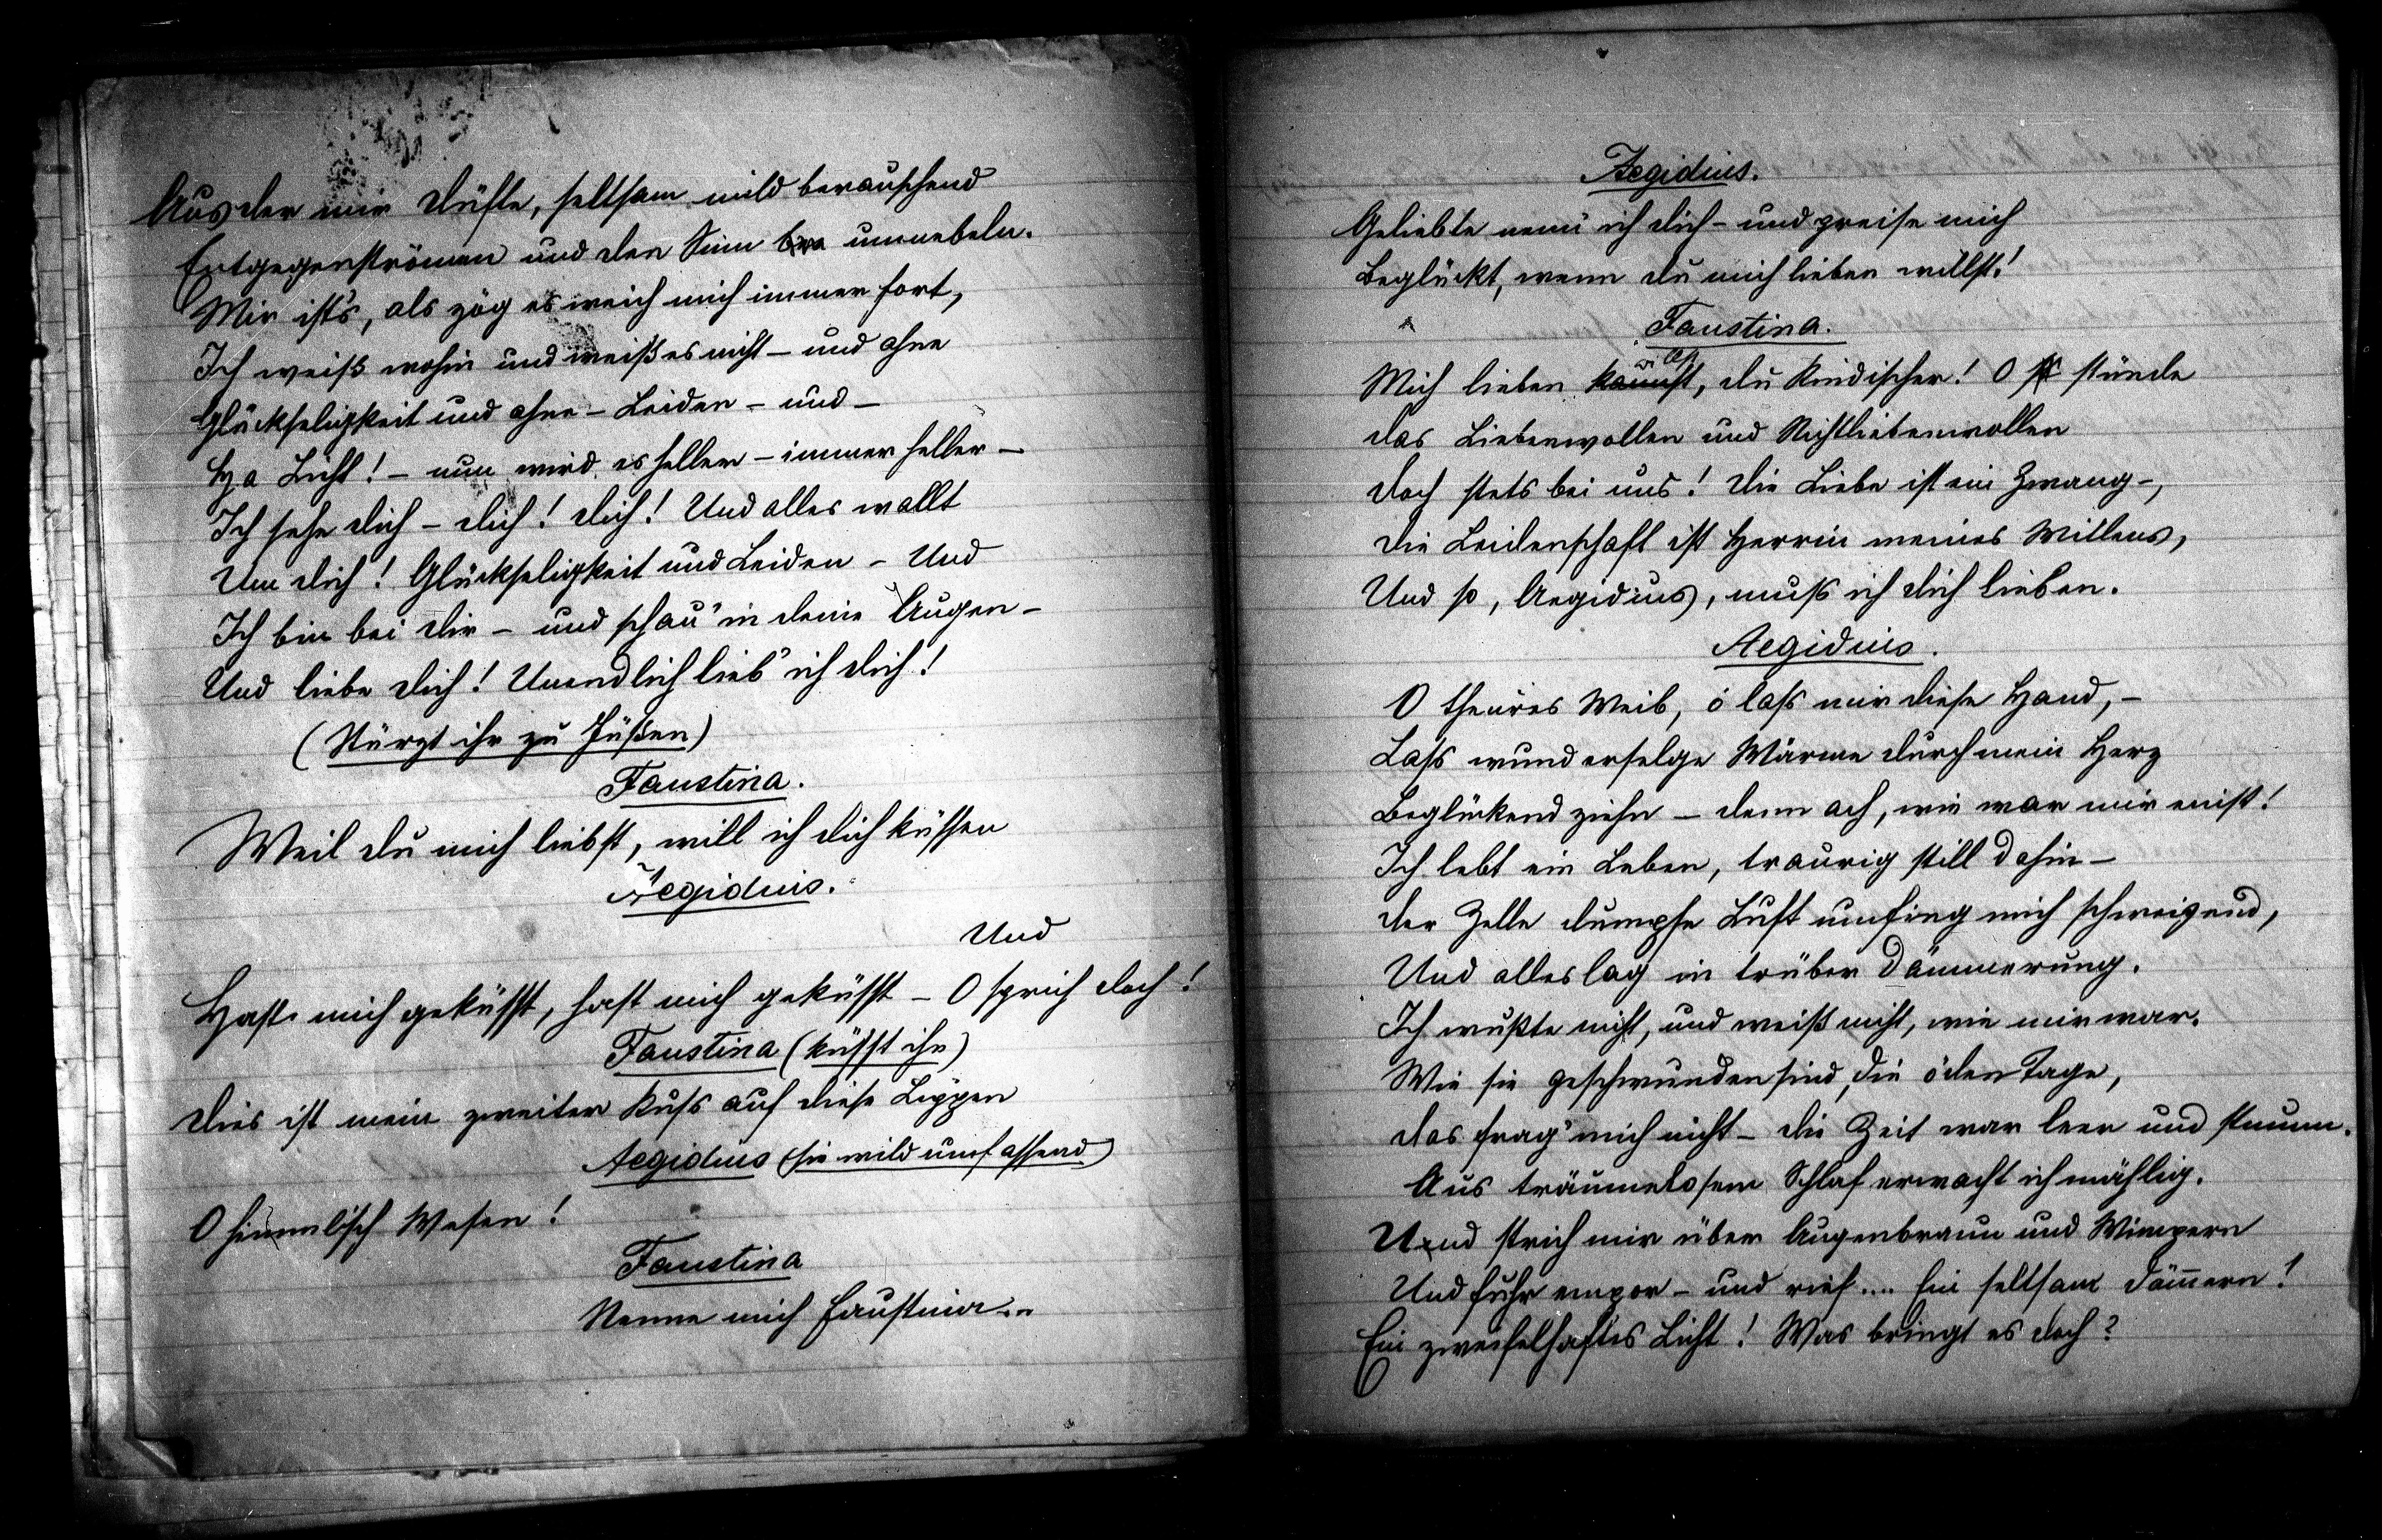 Aus der mir Düfte, seltsam mild berauschend
Entgegenströmen und den Sinn umnebeln.
Mir ists, als zög es weich mich immer fort,
Ich weiß wohin und weiß es nicht – und ohne
Glückseligkeit und ohne – Leiden – und –
Ha Licht! – nun wird es heller – immer heller –
Ich sehe dich – dich! dich! Und alles wallt
Um dich! Glückseligkeit und Leiden – Und
Ich bin bei dir – und schau' in deine Augen –
Und liebe dich! Unendlich lieb' ich dich!
(Stürzt ihr zu Füßen)
Faustina.
Weil du mich liebst, will ich dich küssen
Aegidius.
Und
Hast mich geküsst, hast mich geküsst – O sprich doch!
Faustina (küsst ihn)
Dies ist mein zweiter Kuss auf diese Lippen
Aegidius (sie wild umfassend)
O himmlisch Wesen!
Faustina
Nenne mich Faustina..
Aegidius.
Geliebte nenn' ich dich – und preise mich
Beglückt, wenn du mich lieben willst!
Faustina.
Mich lieben willst, du Kindischer! O stünde
Das Liebenwollen und Nichtliebenwollen
Doch stets bei uns! Die Liebe ist ein Zwang –,
Die Leidenschaft ist Herrin meines Willens,
Und so, Aegidius, muss ich dich lieben.
Aegidius.
O theures Weib, o lass mir diese Hand, –
Lass wunderselge Wärme durch mein Herz
Beglückend ziehn – denn ach, wie war mir einst!
Ich lebt ein Leben, traurig still dahin –
Der Zelle dumpfe Luft umfing mich schweigend,
Und alles lag in trüber Dämmerung.
Ich wußte nicht, und weiß nicht, wie mir war.
Wie sie geschwunden sind, die öden Tage,
Das frag' mich nicht – die Zeit war leer und stumm.
Aus träumelosem Schlaf erwacht ich mählig.
Und strich mir über Augenbraun und Wimpern
Und fuhr empor – und rief.... Ein seltsam Dämmern!
Ein zweifelhaftes Licht! Was bringt es doch?